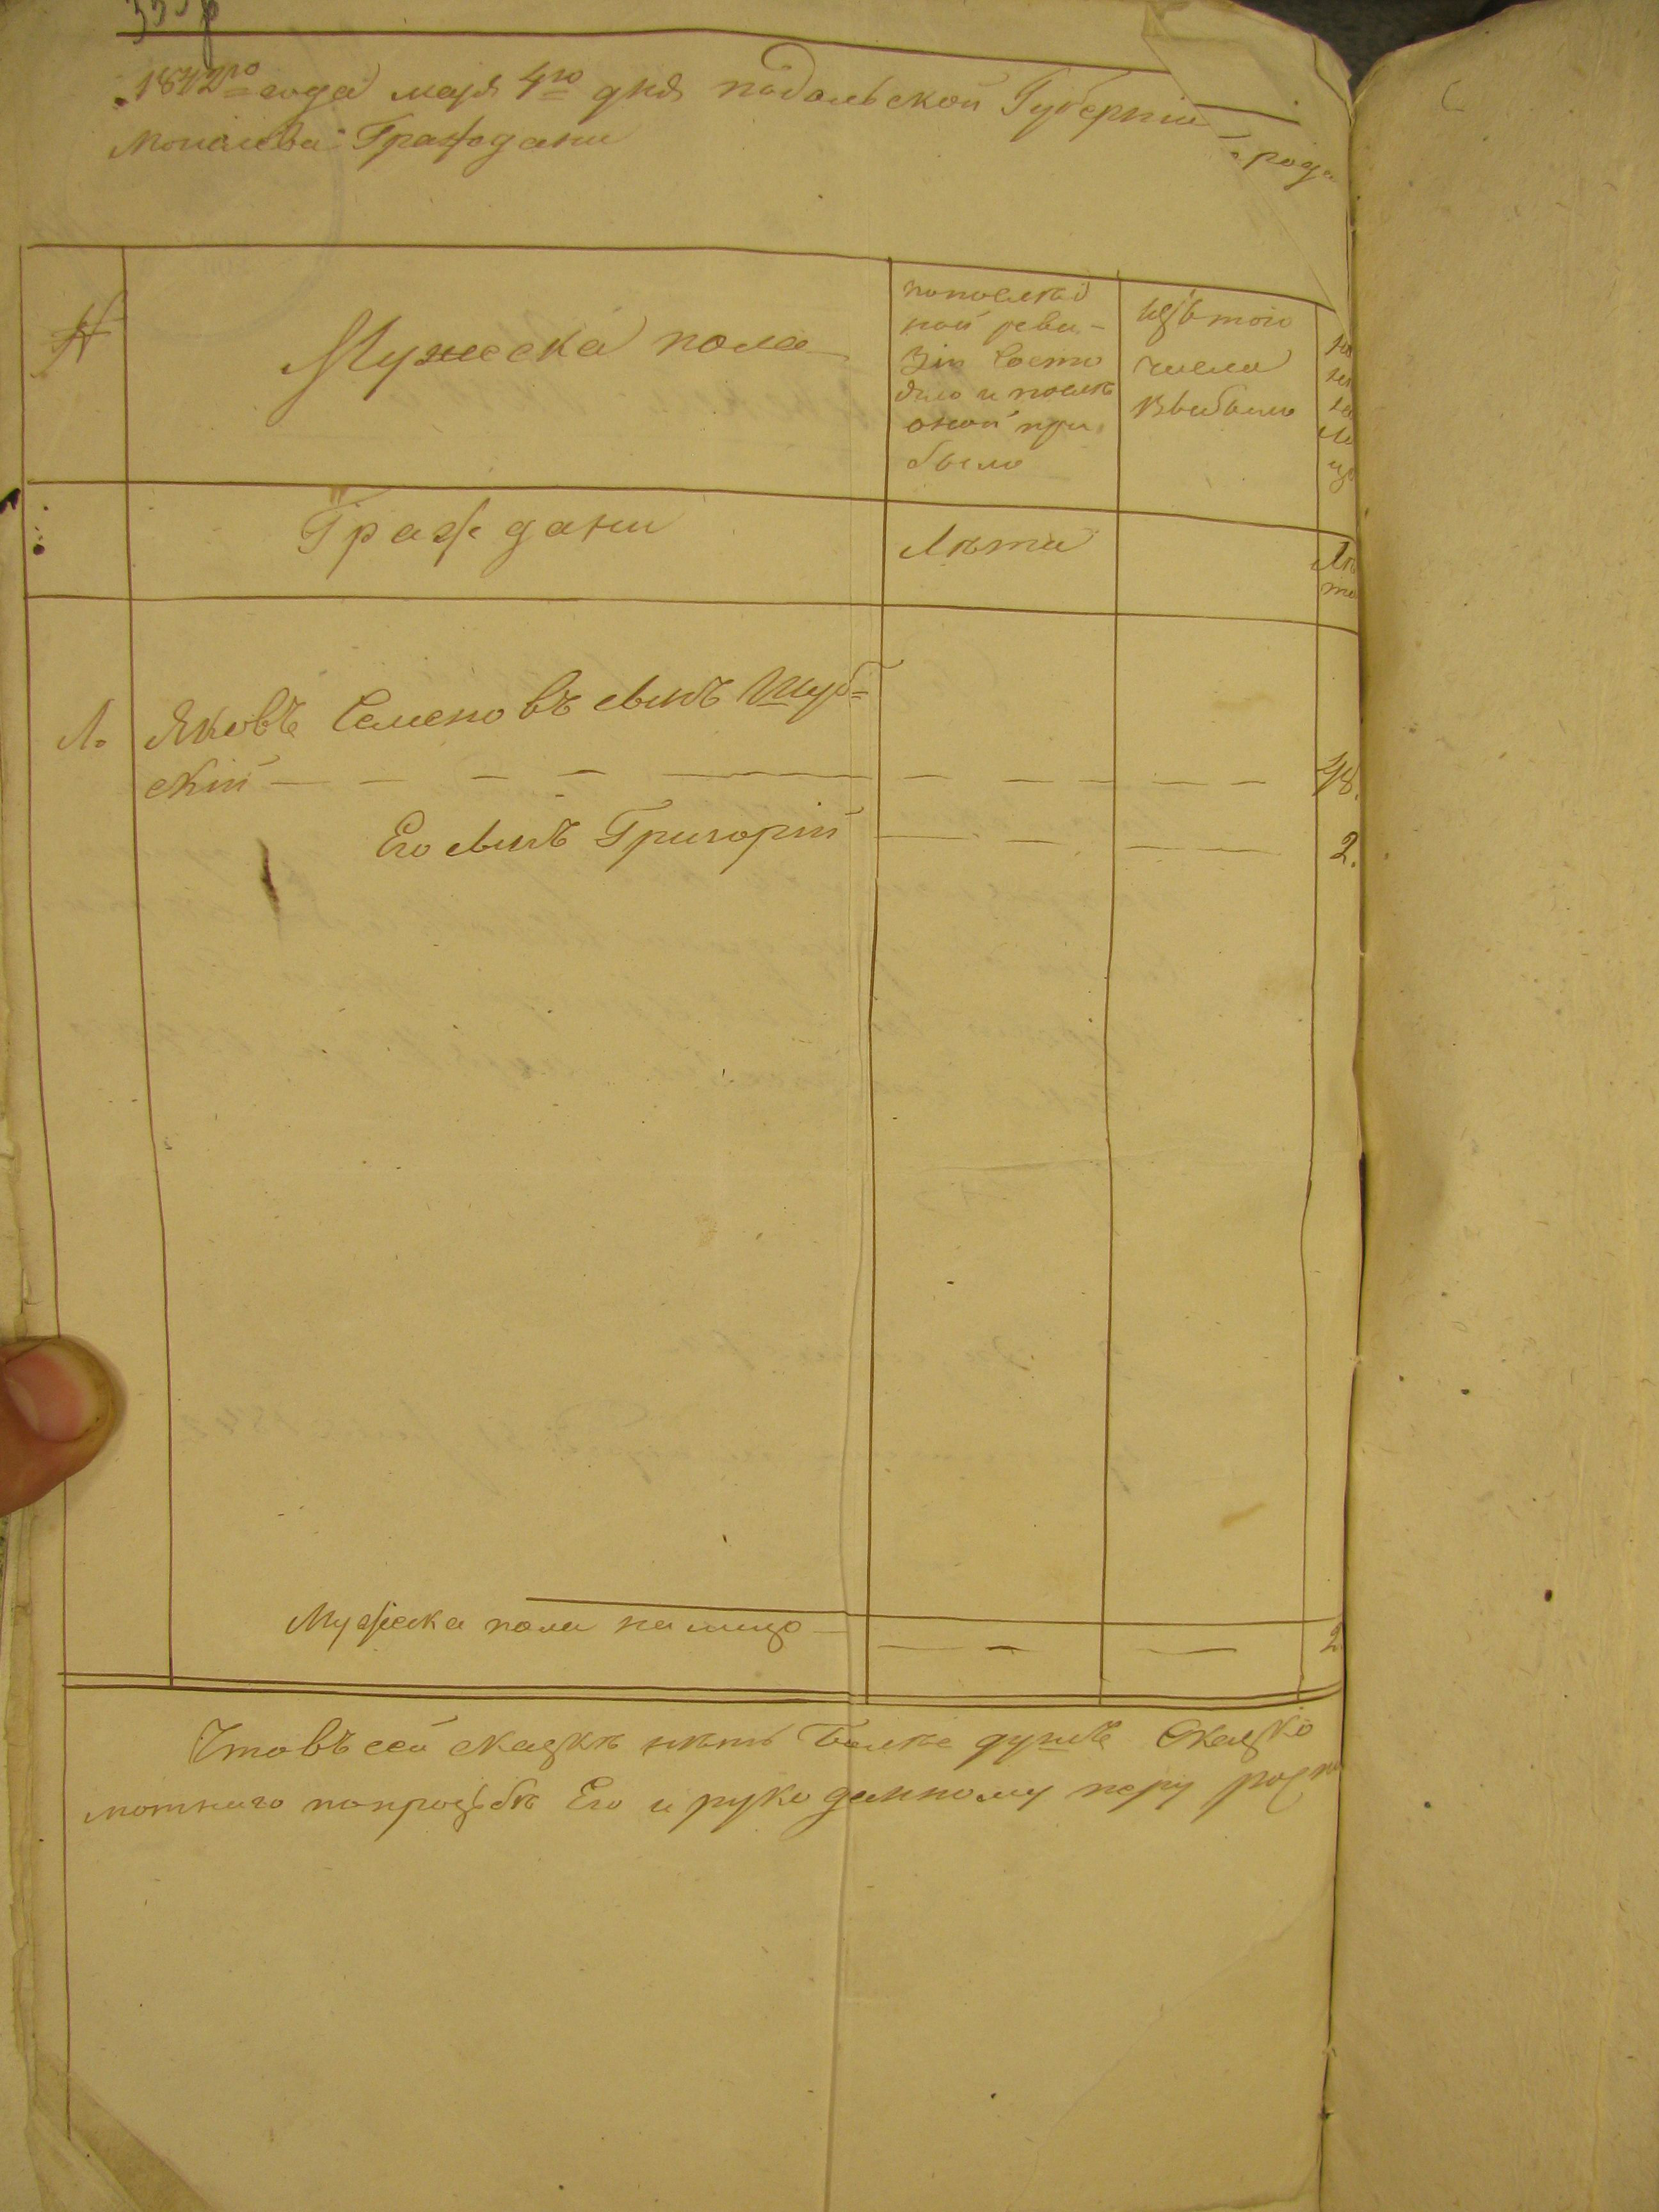 1842го года мая 4го дня подольской Губерніи города
могилева Граждани
№
Мужеска пола
попослѣд
ной реви-
зіи Состо
яло и послѣ
оной при
было
изъ того
числа
выбыло
Граждани
Лѣта
Лѣ
та
1. Яковъ Семеновъ сынъ Шуб=
скій 48.
Его сынъ Григорій 2.
Мужеска пола на лицо 2
Что въ сей сказкѣ нѣтъ болѣе душъ
мотнаго попрозьбѣ Его и рукоданному